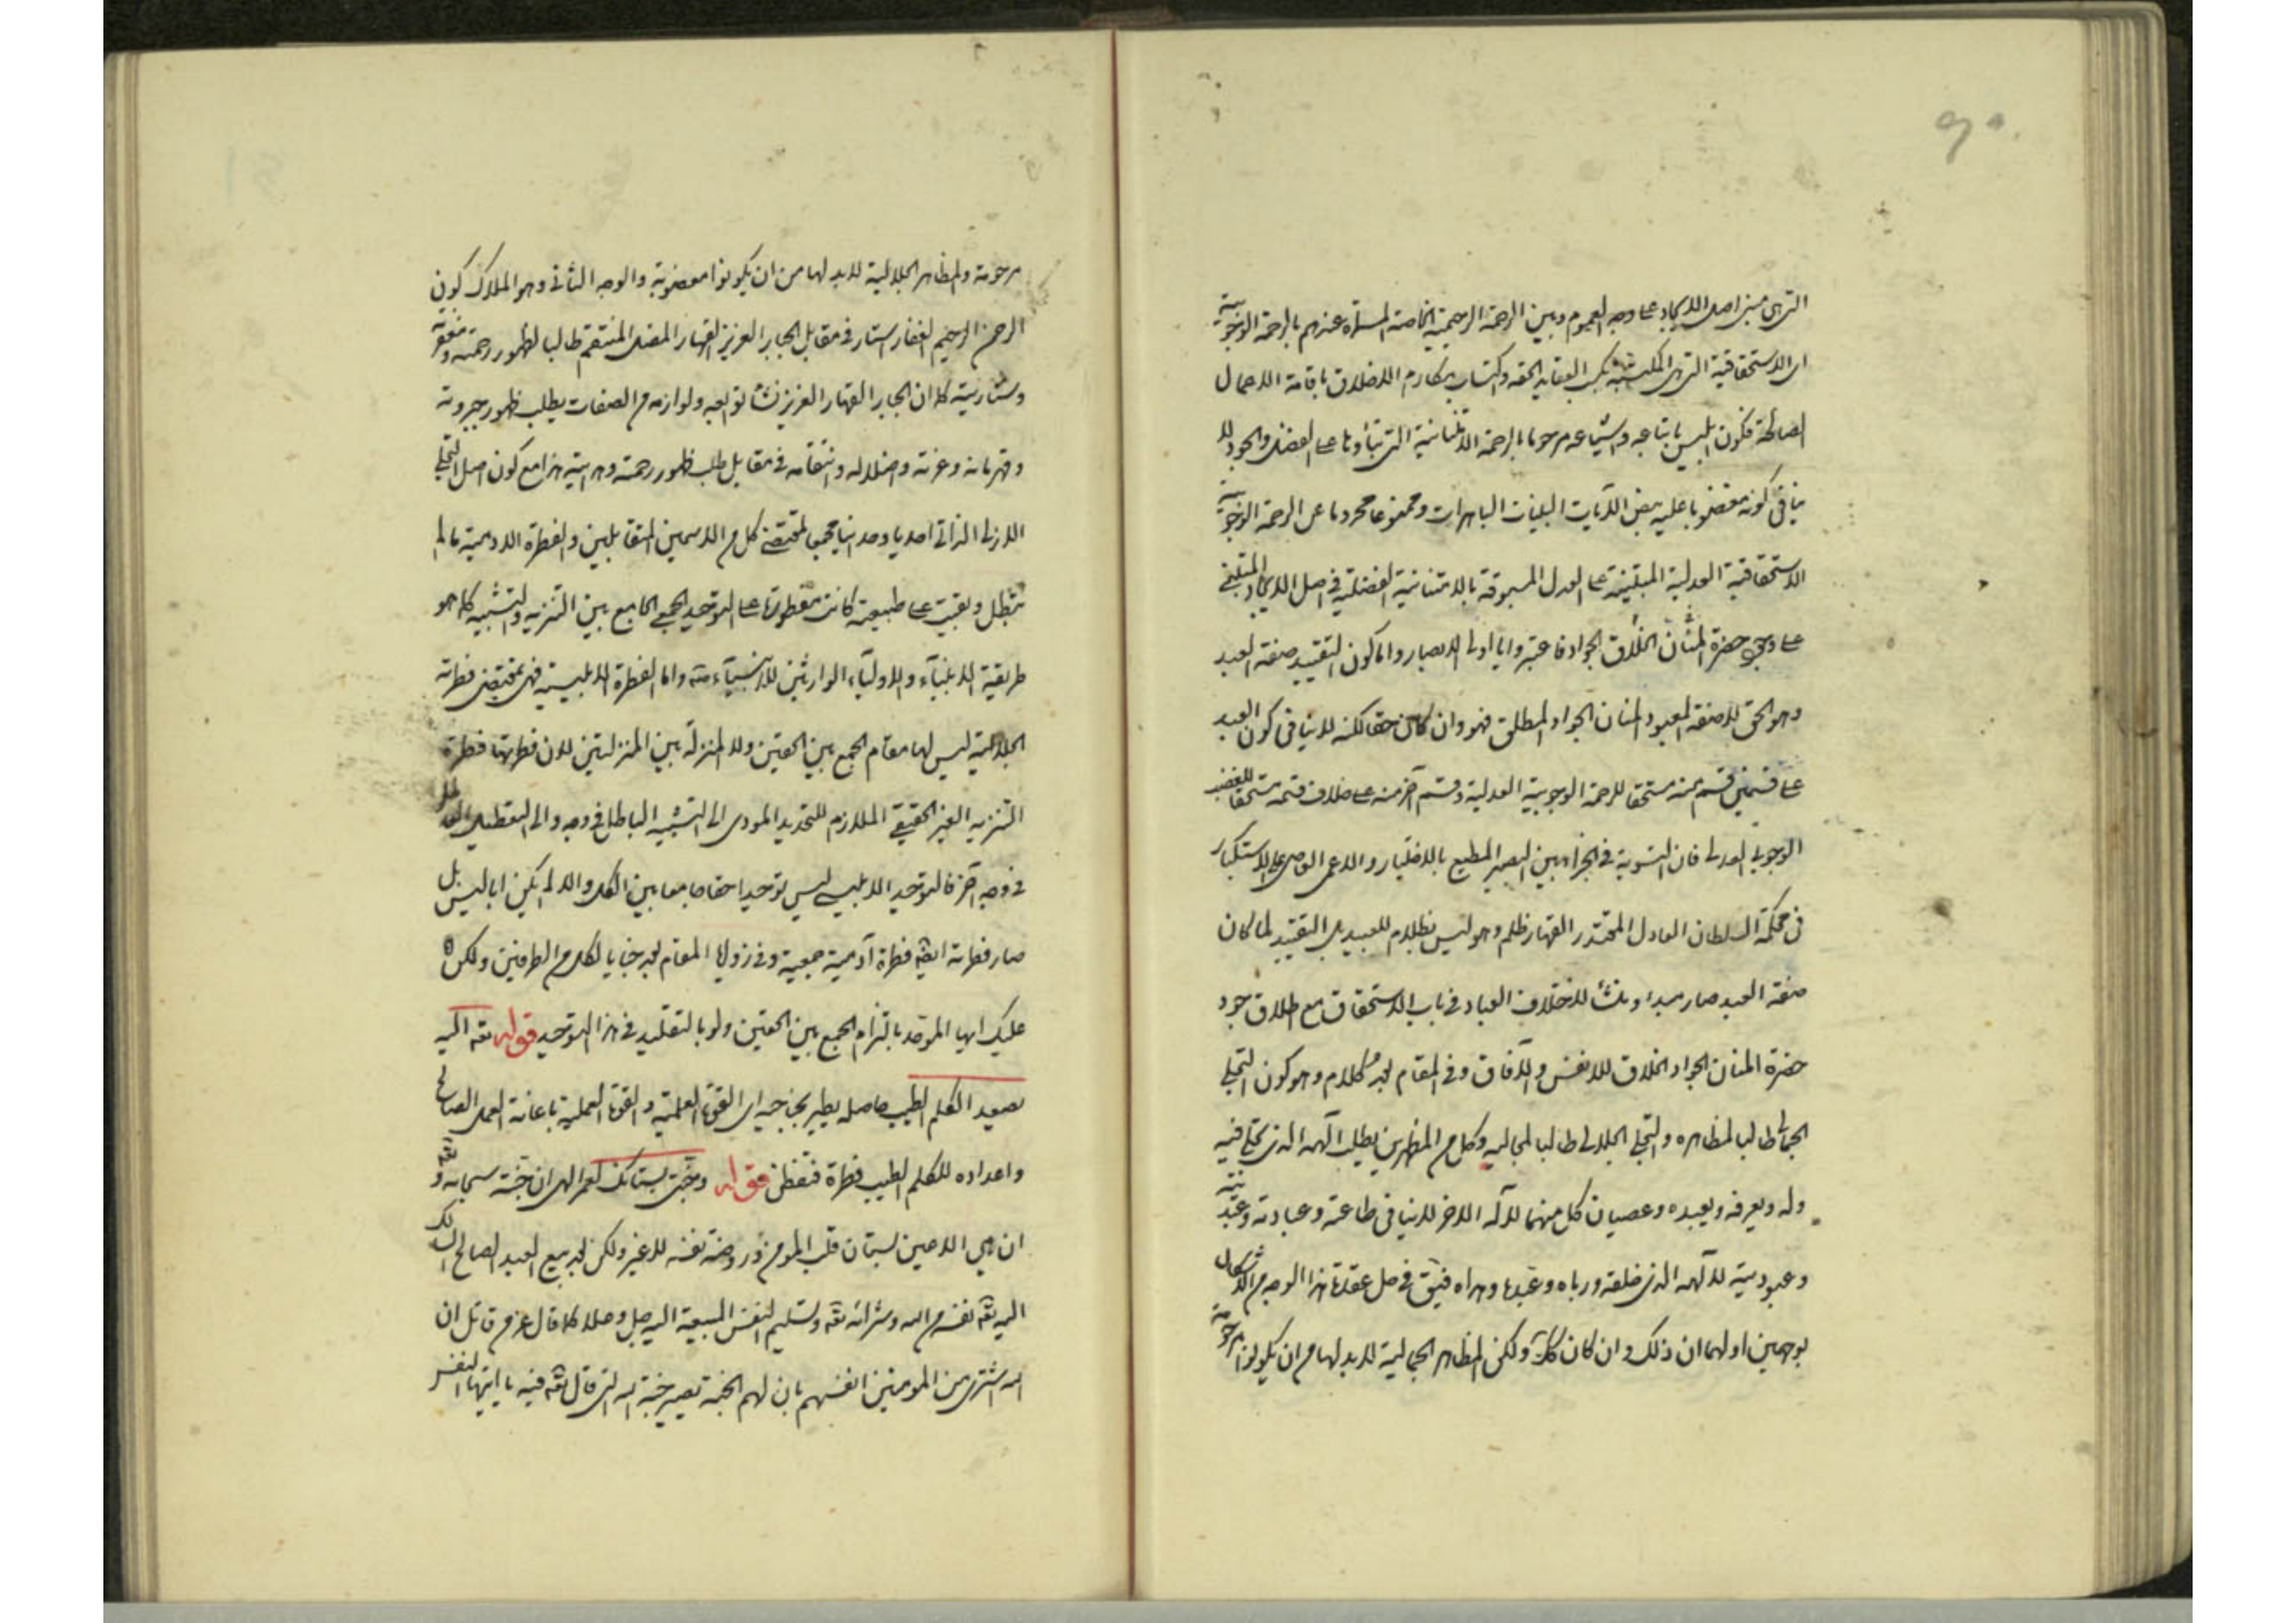 التى هى مبنى اصل الايجاد على وجه العموم وبين الرحمة الرحيمية الخاصة المسماة عندهم بالرحمة الوجوبية
اى الاستحقاقية التى هى المكتسبة بكسب العقايد الحقه واكتساب مكارم الاخلاق باقامة الاعمال
الصالحة فكون ابليس باتباعه واشياعه مرحوما بالرحمة الامتنانية التى بناؤها على الفضل والجود لا
ينافى كونه مغضوبا عليه ببعض الآيات البينات الباهرات وممنوعا محروما عن الرحمة الوجوبية
الاستحقاقية العدلية المبتنية على العدل المسبوقة بالامتنانية الفضلية فى اصل الايجاد المبتنى
على وجود حضرة المنان الخلاق الجواد فاعتبروا يا اولى الابصار واما كون التقييد صفة العبد
وهو الحق لا صفة المعبود المنان الجواد المطلق فهو وان كان حقا لكنه لا ينافى كون العبد
على قسمين قسم منه مستحقا للرحمة الوجوبية العدلية وقسم آخر منه على خلاف قسمه مستحقا للغضب
الوجوبى العدلى فان التسوية فى الجزاء بين البصير المطيع بالاختيار والاعمى العاصى على الاستكبار
فى محكمة السلطان العادل المقتدر القهار ظلم وهو ليس بظلام للعبيد بل التقييد لما كان
صفة العبد صار مبدا ومنشأ لاختلاف العباد فى باب الاستحقاق مع اطلاق جود
حضرة المنان الجواد الخلاق للانفس والآفاق وفى المقام بعد كلام وهو كون التجلى
الجمالى طالبا لمظاهره والتجلى الجلالى طالبا لمجاليه وكل من المظهرين يطلب الهه الذى تجلى فيه
وله ويعرفه ويعبده وعصيان كل منهما لاله الاخر لا ينافى طاعته وعبادته وعبديته
وعبوديته لالهه الذى خلقه ورباه وعبدها وهداه فبقى فى حل عقدة هذا الوجه من الاشكال
بوجهين اولهما ان ذلك وان كان كذلك ولكن المظاهر الجمالية لا بد لها من ان يكونوا مرحومة
مرحومة والمظاهر الجلالية لا بد لها من ان يكونوا مغضوبة والوجه الثانى وهو الملاك كون
الرحمن الرحيم الغفار الستار فى مقابل الجبار العزيز القهار المضل المنتقم طالبا لظهور رحمته ومغفرته
وستاريته كما ان الجبار القهار العزيز بتوابعه ولوازمه من الصفات يطلب ظهور جبروته
وقهرمانه وعزته واضلاله وانتقامه فى مقابل طلب ظهور رحمته وهدايته هذا مع كون اصل التجلى
الازلى الذاتى احديا وحدانيا يجمع مقتضى كل من الاسمين المتقابلين والفطرة الادمية ما لم
تبطل وبقيت على طبيعته كانت مفطورة على التوحيد الجمعى الجامع بين التنزيه والتشبيه كما هو
طريقة الانبياء والاولياء الوارثين للانبياء منه واما الفطرة الابليسية فهى بمقتضى فطرته
الجلالية ليس لها مقام الجمع بين الحقين ولا المنزلة بين المنزلتين لان فطرتها فطرة
التنزيه الغير الحقيقى الملازم للتحديد المودى الى التشبيه الباطل فى وجه والى التعطيل
فى وجه آخر فالتوحيد الابليسى ليس توحيدا حقا جامعا بين الكل والا لم يكن ابليس بل
صار فطرته ايضا فطرة آدمية جمعية وفى زوايا المقام بعد خبايا لكل من الطرفين ولكن
عليك ايها الموحد بالتزام الجمع بين الحقين ولو بالتقليد فى هذا التوحيد قوله تعه اليه
يصعد الكلم الطيب حاصله يطير بجناحيه اى القوة العلمية والقوة العملية باعانة العمل الصالح
واعداده للكلم الطيب فطرة فتفطن قوله وجنتى بستانك لعمر الهى ان جنته سبحانه وتعه
ان هى الا عين بستان قلب المؤمن وروضة نفسه لا غير ولكن بعد بيع العبد الصالح السالك
اليه تعه نفسه من الله وشرائه تعه وتسليم النفس المبيعة اليه جل وعلا كما قال عز من قائل ان
الله اشترى من المومنين انفسهم بان لهم الجنة تصير جنة الله التى قال تعه فيه يا ايتها النفس